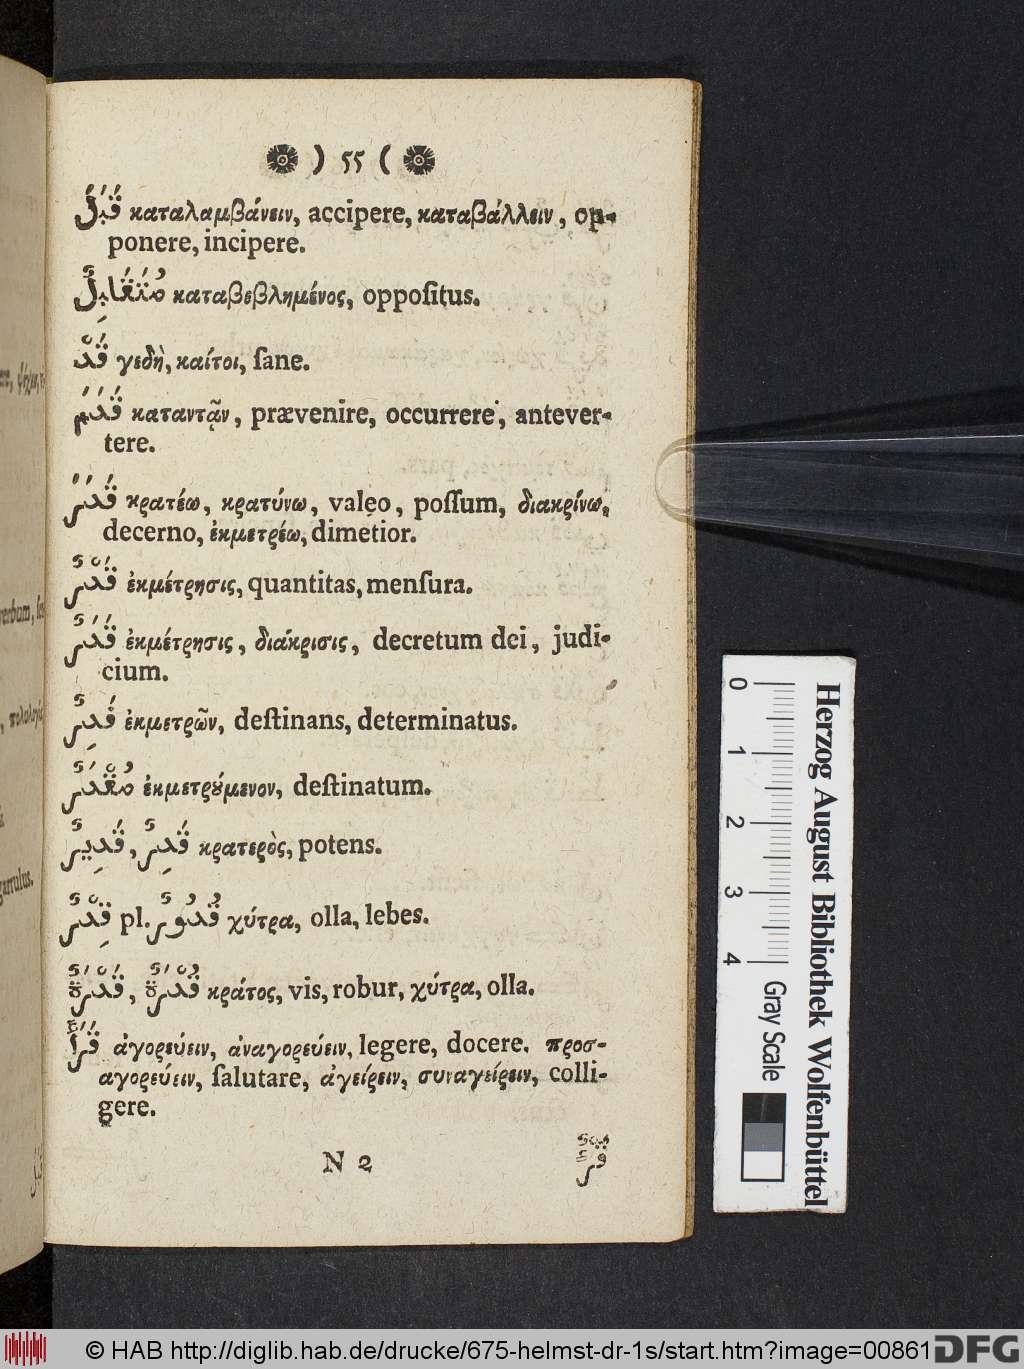 ) 55 (
قَبَلَ καταλαμβάνειν, accipere, καταβάλλειν, op-
ponere, incipere.
مُتَقَابِلٌ καταβεβλημένος, oppoſitus.
قَدْ γεδὴ, καίτοι, ſane.
قَدَمَ καταντᾷν, prævenire, occurrere, antever-
tere.
قَدَرَ κρατέω, κρατύνω, valeo, poſſum, διακρίνω,
decerno, ἐκμετρέω, dimetior.
قَدْرٌ ἐκμέτρησις, quantitas, menſura.
قَدَرٌ ἐκμέτρησις, διάκρισις, decretum dei, judi-
cium.
قَدِرٌ ἐκμετρῶν, deſtinans, determinatus.
مُقْدَرٌ ἐκμετρούμενον, deſtinatum.
قَدِيرٌ, قَدِرٌ κρατερὸς, potens.
قِدْرٌ pl. قُدُورٌ χύτρα, olla, lebes.
قَدْرَةٌ, قُدْرَةٌ κράτος, vis, robur, χύτρα, olla.
قَرَأَ ἀγορεύειν, ἀναγορεύειν, legere, docere. προσ-
αγορεύειν, ſalutare, ἀγείρειν, συναγείρειν, colli-
gere.
N 2
verbum,
garrulus.
Herzog August Bibliothek Wolfenbüttel
0 1 2 3 4
Gray Scale
© HAB http://diglib.hab.de/drucke/675-helmst-dr-1s/start.htm?image=00861 DFG